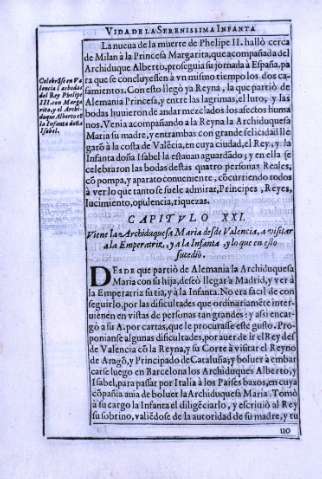 VIDA DE LA SERENISSIMA INFANTA
La nueua de la muerte de Phelipe II. hallò cerca
de Milàn à la Princesa Margarita, que acompañada del
Archiduque Alberto, proseguia su jornada à España, pa
ra que se concluyessen à vn mismo tiempo los dos ca-
samientos. Con esto llegò ya Reyna, la que partiò de
Alemania Princesa, y entre las lagrimas, el luto, y las
bodas huuieron de andar mezclados los afectos huma
nos. Venia acompañando à la Reyna la Archiduquesa
Maria su madre, y entrambas con grande felicidad lle
garõ à la costa de Valẽcia, en cuya ciudad, el Rey, y la
Infanta doña Isabel la estauan aguardãdo; y en ella se
celebraron las bodas destas quatro personas Reales,
cõ pompa, y aparato conueniente, cõcurriendo todos
à ver lo que tanto se suele admirar, Principes, Reyes,
lucimiento, opulencia, riquezas.
Celebrãse en Va
lencia las bodas
del Rey Phelipe
III. con Marga
rita, y el Archi-
duque Alberto cõ
la Infanta doña
Isabel.
CAPITVLO XXI.
Viene la Archiduquesa Maria desde Valencia, a visitar
a la Emperatriz, y a la Infanta. y lo que en esto
sucediò.
DESDE que partiò de Alemania la Archiduquesa
Maria con su hija, deseò llegar a Madrid, y ver à
la Emperatriz su tia, y à la Infanta. No era facil de con
seguirlo, por las dificultades que ordinariamẽte inter-
uienen en vistas de personas tan grandes: y assi encar-
gò a su A. por cartas, que le procurasse este gusto. Pro-
ponianse algunas dificultades, por auer de ir el Rey des
de Valencia cõ la Reyna, y su Corte à visitar el Reyno
de Aragõ, y Principado de Cataluña, y boluer à embar
carse luego en Barcelona los Archiduques Alberto, y
Isabel, para passar por Italia à los Paises baxos, en cuya
cõpañia auia de boluer la Archiduquesa Maria. Tomò
à su cargo la Infanta el diligẽciarlo, y escriuiò al Rey
su sobrino, valiẽdose de la autoridad de su madre, y tu
uo